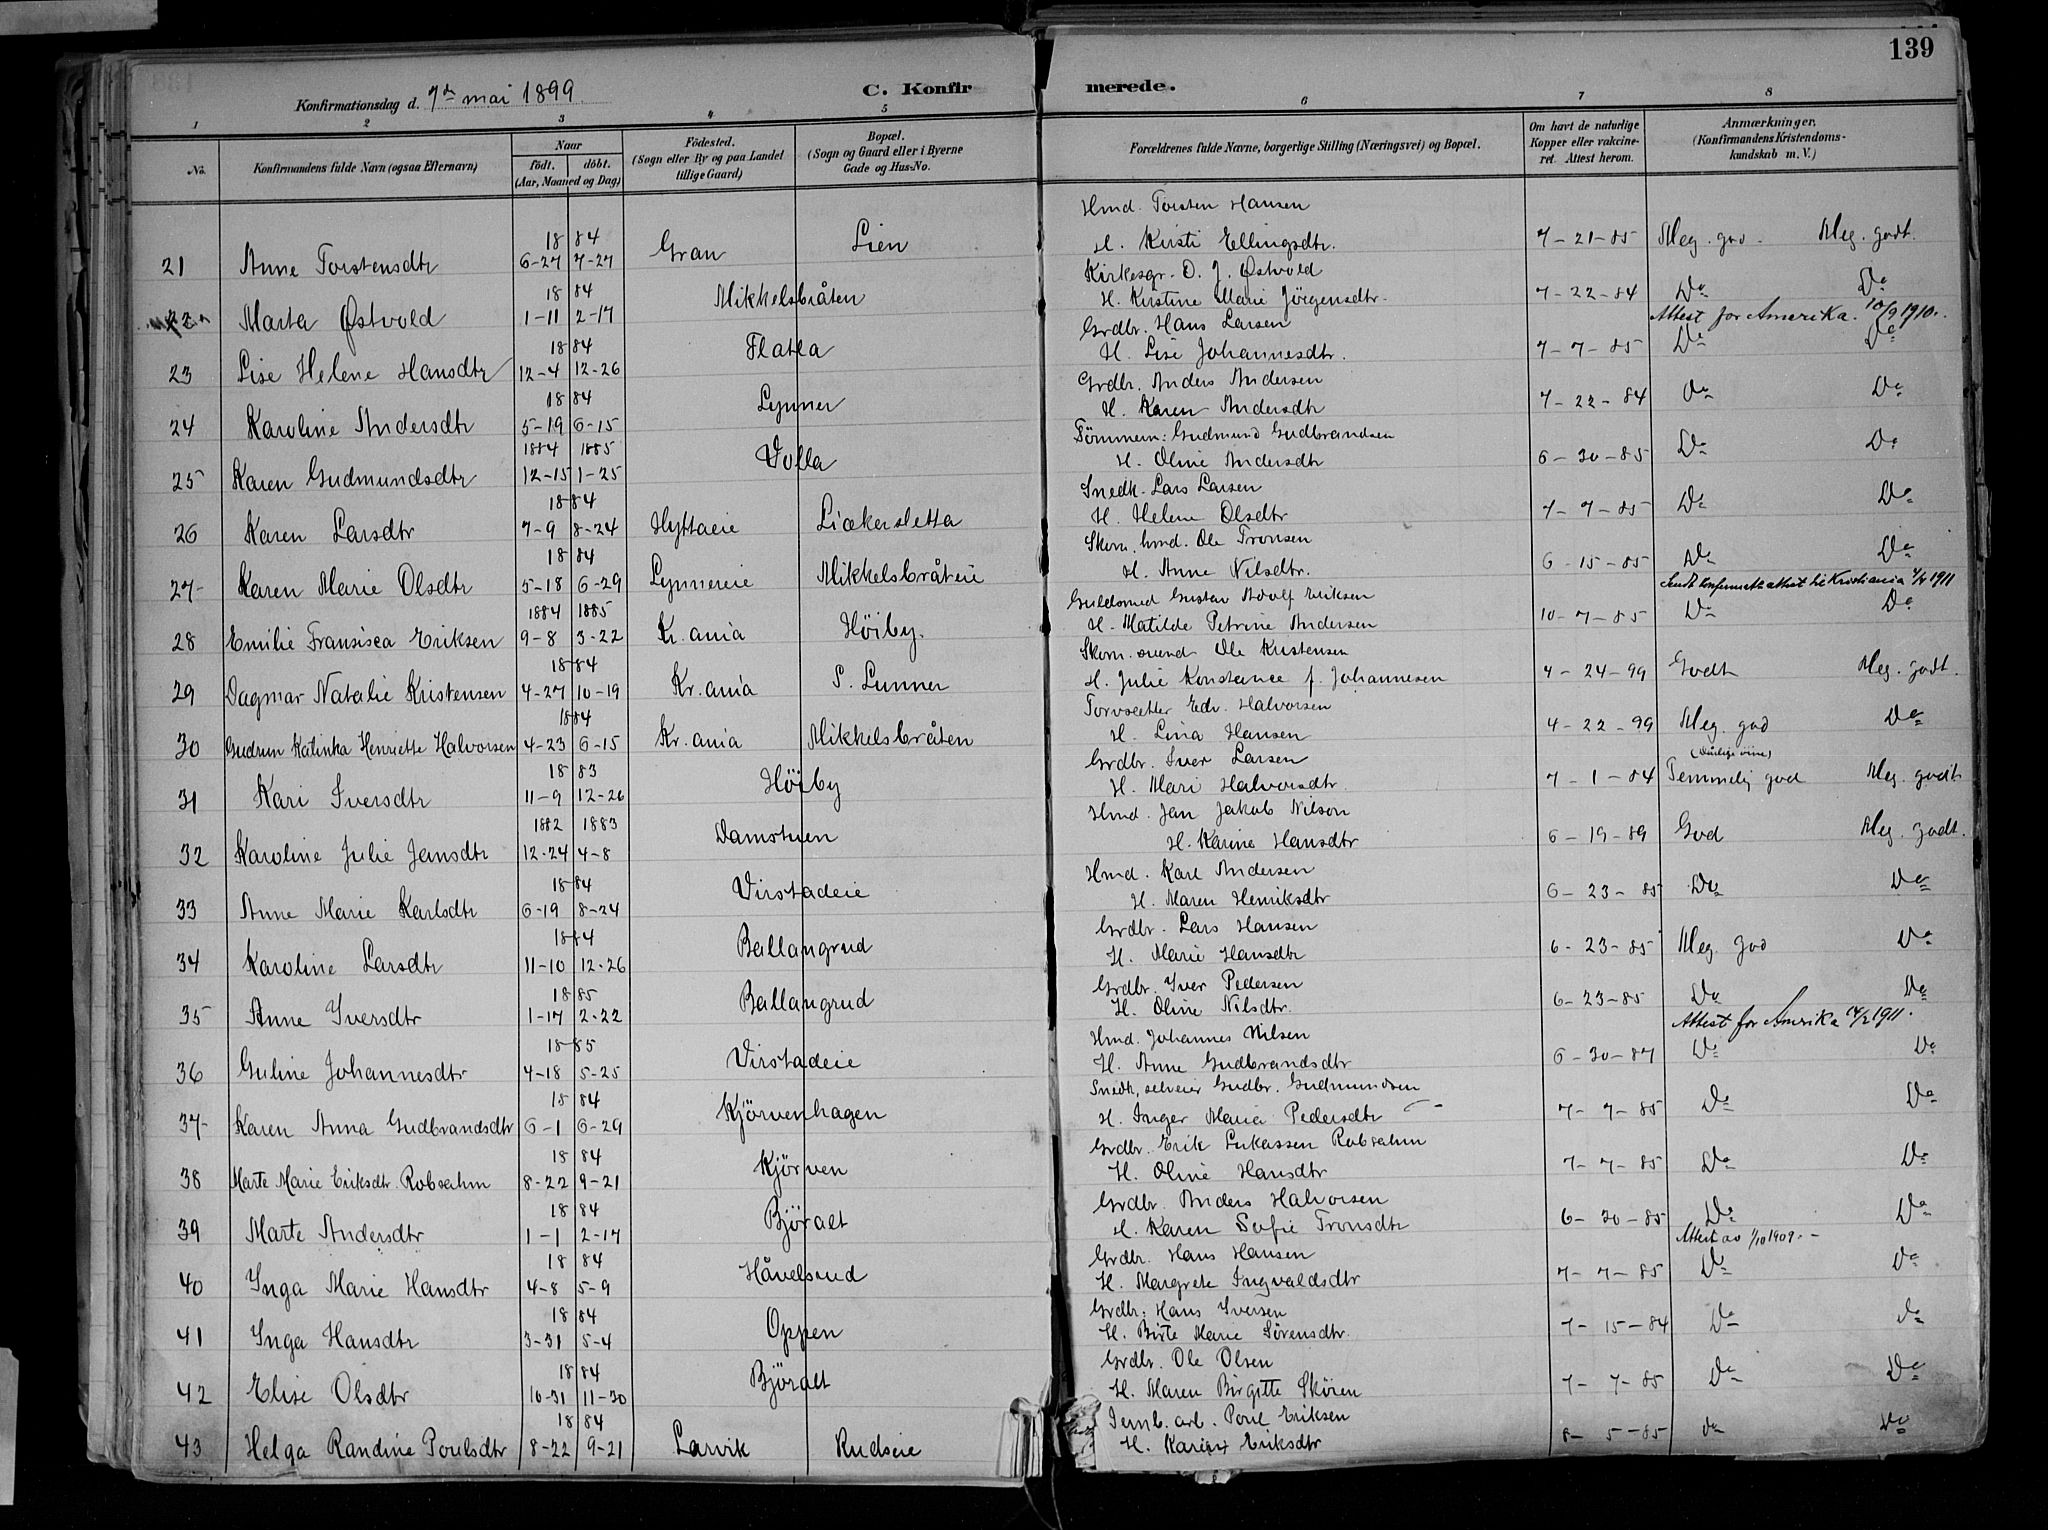 139
Konfirmationsdag d. 7de mai 1899.
C. Konfirmerede.
1 2 3 4 5 6 7 8
No. Konfirmandens fulde Navn (ogsaa Efternavn) Naar født. døbt. (Aar, Maaned og Dag) Födested. (Sogn eller By og paa Landet tillige Gaard) Bopæl. (Sogn og Gaard eller i Byerne Gade og Hus-No. Forældrenes fulde Navne, borgerlige Stilling (Næringsvei) og Bopæl. Om havt de naturlige Kopper eller vakcineret. Attest herom. Anmærkninger. (Konfirmandens Kristendomskundskab m. V.)
Hmd. Torsten Hansen
18 84
21 Anne Torstensdtr 6-27 7-27 Gran Lien H. Kirsti Ellingsdtr. 7-21-85 Meg. god. Meg. godt.
18 84 Kirkesgr. O. J. Østvold
22 Marta Østvold 1-11 2-17 Mikkelsbråten H. Kirstine Marie Jörgensdtr. 7-22-84 Do Do
Attest for Amerika. 10/9 1910.
18 84 Grdbr. Hans Larsen
23 Lise Helene Hansdtr 12-4 12-26 Flatla H. Lise Johannesdtr. 7-7-85 Do Do
18 84 Grdbr. Anders Andersen
24 Karoline Andersdtr 5-19 6-15 Lynner H. Karen Andersdtr 7-22-84 Do Do
1884 1885 Tömmerm: Gudmund Gudbrandsen
25 Karen Gudmundsdtr 12-15 1-25 Volla H. Oline Andersdtr 6-30-85 Do Do
18 84 Snedk. Lars Larsen
26 Karen Larsdtr 7-9 8-24 Hyttaeie Liækersletta H. Helene Olsdtr 7-7-85 Do Do
18 84 Skom. hmd. Ole Tronsen
27- Karen Marie Olsdtr 5-18 6-29 Lynnereie Mikkelsbråteie H. Anne Nilsdtr. 6-15-85 Do Do
Kristiania 1911
1884 1885 Guldsmed Gustav Adolf Eriksen
28 Emilie Fransisca Eriksen 9-8 3-22 Kr.ania Höiby. H. Matilde Petrine Andersen 10-7-85 Do Do
18 84 Skom. svend Ole Kristensen
29 Dagmar Natalie Kristensen 4-27 10-19 Kr.ania S. Lunner H. Julie Konstance f. Johannesen 4-24-99 Godt Meg. godt.
18 84 Torvsætter Edv. Halvorsen
30 Gudrun Katinka Henriette Halvorsen 4-23 6-15 Kr.ania Mikkelsbråten H. Lina Hansen 4-22-99 Meg. god Do
18 83 Grdbr. Iver Larsen
31 Kari Iversdtr 11-9 12-26 Höiby H. Mari Halvorsdtr. 7-1-84 Temmelig god Meg. godt
1882 1883 Hmd. Jan Jakob Nilson
32 Karoline Julie Jansdtr 12-24 4-8 Damstuen H. Karine Hansdtr 6-19-89 God Meg. godt.
18 84 Hmd. Karl Andersen
33 Anne Marie Karlsdtr 6-19 8-24 Virstadeie H. Maren Henriksdtr 6-23-85 Do Do
18 84 Grdbr. Lars Hansen
34 Karoline Larsdtr 11-10 12-26 Ballangrud H. Marie Hansdtr 6-23-85 Meg. god Do
18 85 Grdbr. Iver Pedersen
35 Anne Iversdtr 1-17 2-22 Ballangrud H. Oline Nilsdtr. 6-23-85 Do Do
Attest for Amerika 14/2 1911.
18 85 Hmd. Johannes Nilsen
36 Guline Johannesdtr 4-18 5-25 Virstadeie H. Anne Gudbrandsdtr 6-30-87 Do Do
18 84 Snedk, selveier Gudbr. Gudmundsen
37- Karen Anna Gudbrandsdtr 6-1 6-29 Kjörvenhagen H. Inger Maria Pedersdtr 7-7-85 Do Do
18 84 Grdbr. Erik Lukassen Robsahm
38 Marte Marie Eriksdtr. Robsahm 8-22 9-21 Kjörven H. Oline Hansdtr 7-7-85 Do Do
18 84 Grdbr. Anders Halvorsen
39 Marte Andersdtr 1-1 2-17 Björalt H. Karen Sofie Tronsdtr 6-30-85 Do Do
Attest av 1/10 1909.
18 84 Grdbr. Hans Hansen
40 Inga Marie Hansdtr 4-8 5-9 Håvelsrud H. Margrete Ingvaldsdtr 7-7-85 Do Do
18 84 Grdbr: Hans Iversen
41 Inga Hansdtr 3-31 5-4 Oppen H. Birte Marie Sørensdtr. 7-15-84 Do Do
18 84 Grdbr. Ole Olsen
42 Elise Olsdtr 10-31 11-30 Björalt H. Maren Birgitte Skören 7-7-85 Do Do
18 84 Jernb. arb. Poul Eriksen
43 Helga Randine Poulsdtr 8-22 9-21 Larvik Rudseie H. Karine Eriksdtr 8-5-85 Do Do